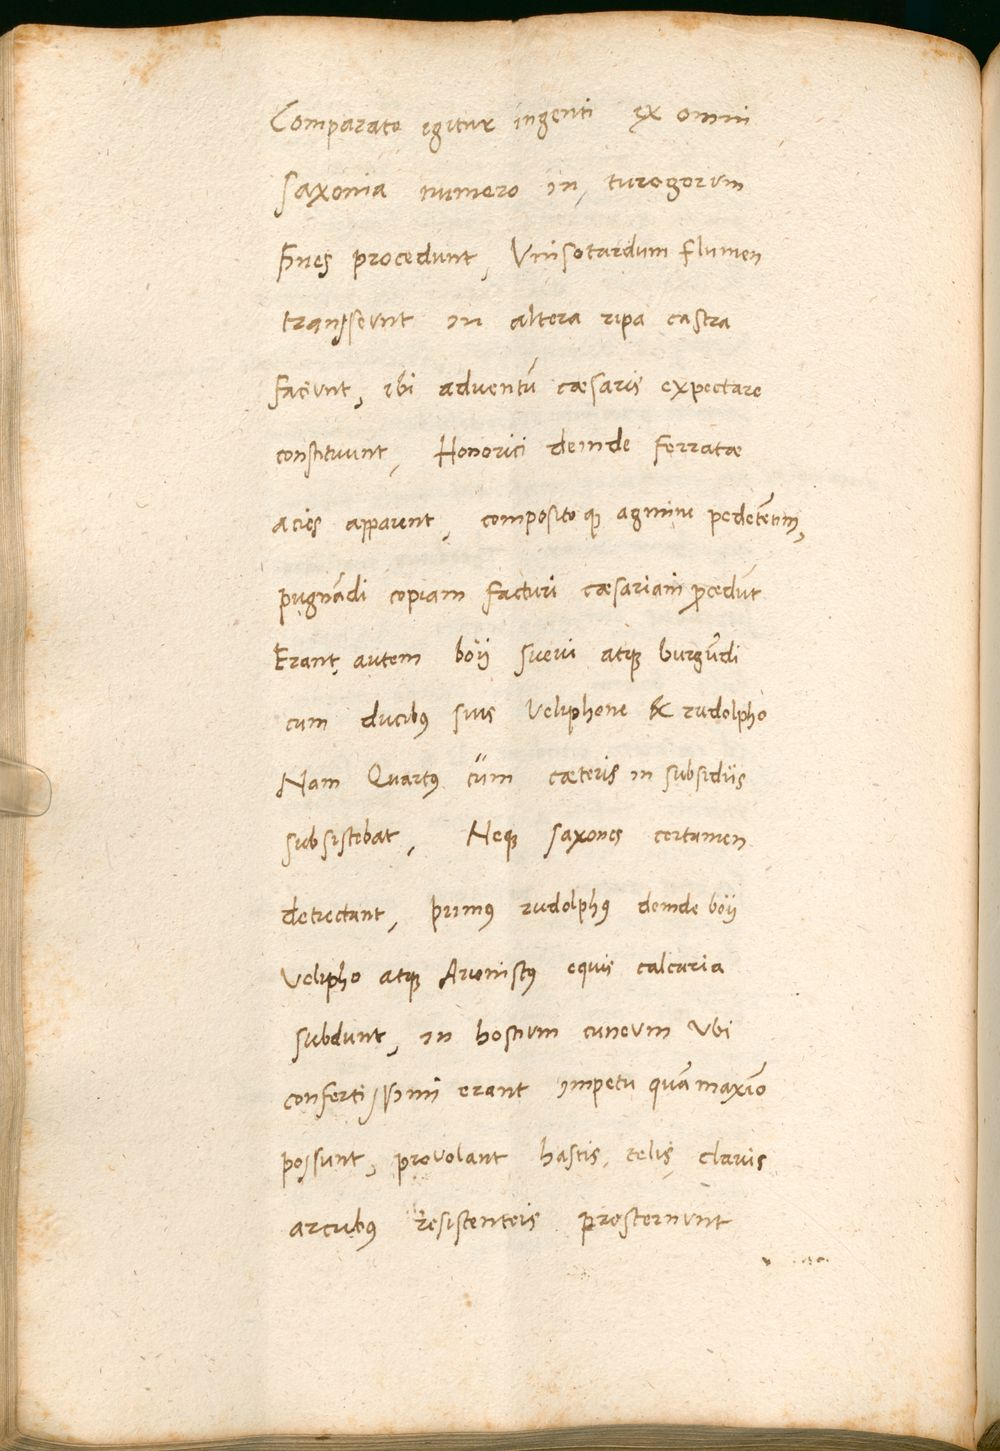 Comparato igitur ingenti ex omni
saxonia numero in, turogorum
fines procedunt, Vnisotardum flumen
transseunt in altera ripa castra
faciunt, ibi adventū cæsaris expectare
constituunt, Honorici deinde ferratæ
acies apparent, composito qꝫ agmine pedetētim,
pugnādi copiam facturi cæsariani ꝓcedūt
Erant autem boij suevi atqꝫ burgūdi
cum ducibꝰ suis Velyphone & rudolpho
Nam Quartꝰ cum cæteris in subsidiis
subsistebat, Neqꝫ saxones certamen
detrectant, primꝰ rudolphꝰ deinde boij
Velypho atqꝫ Arionistꝰ equis calcaria
subdunt, in hostium cuneum Vbi
confertissimi erant impetu quā maxīo
possunt, provolant hastis, telis, clavis
arcubꝰ resistenteis prosternunt